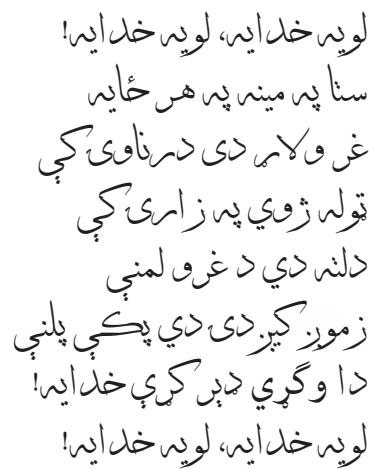 لویه خدایه، لویه خدایه!
ستا په مینه په هر ځایه
غر ولاړ دی درناوی کې
ټوله ژوي په زاری کې
دلته دي د غرو لمنې
زموږ کیږدی دي پکې پلنې
دا وګړي ډېر کړې خدایه!
لویه خدایه، لویه خدایه!